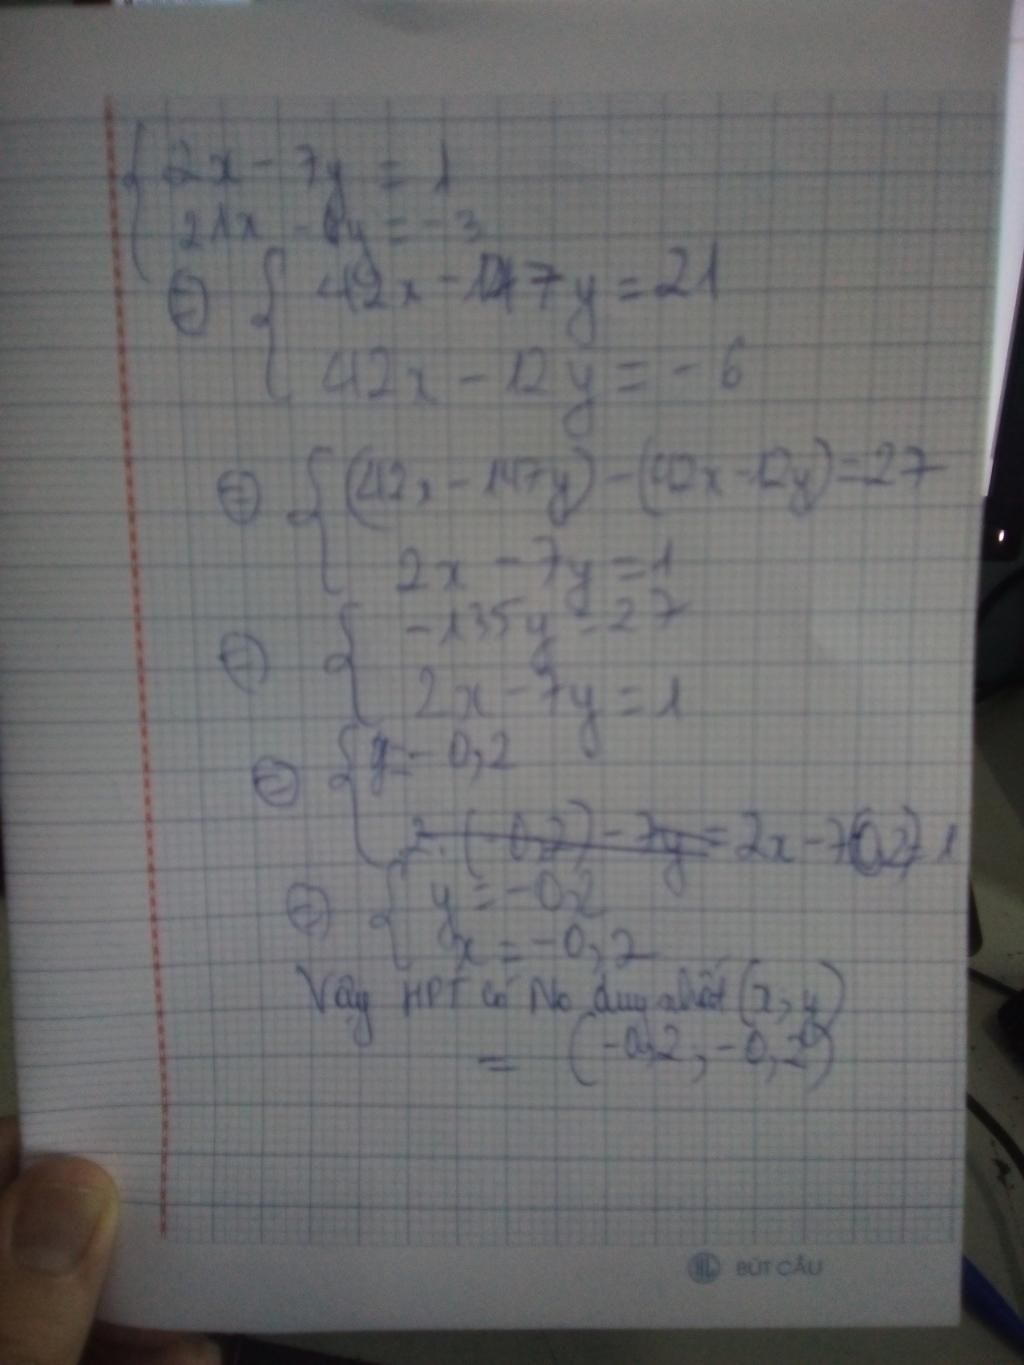 2x - 7y = 1
21x - 6y = -3
⇔ 42x - 147y = 21
42x - 12y = -6
⇔ (42x - 147y) - (42x - 12y) = 27
2x - 7y = 1
⇔ -135y = 27
2x - 7y = 1
⇔ y = -0,2
2x - 7(-0,2) = 1
⇔ y = -0,2
x = -0,2
Vậy HPT có No duy nhất (x; y)
= (-0,2; -0,2)
BÚT CẦU